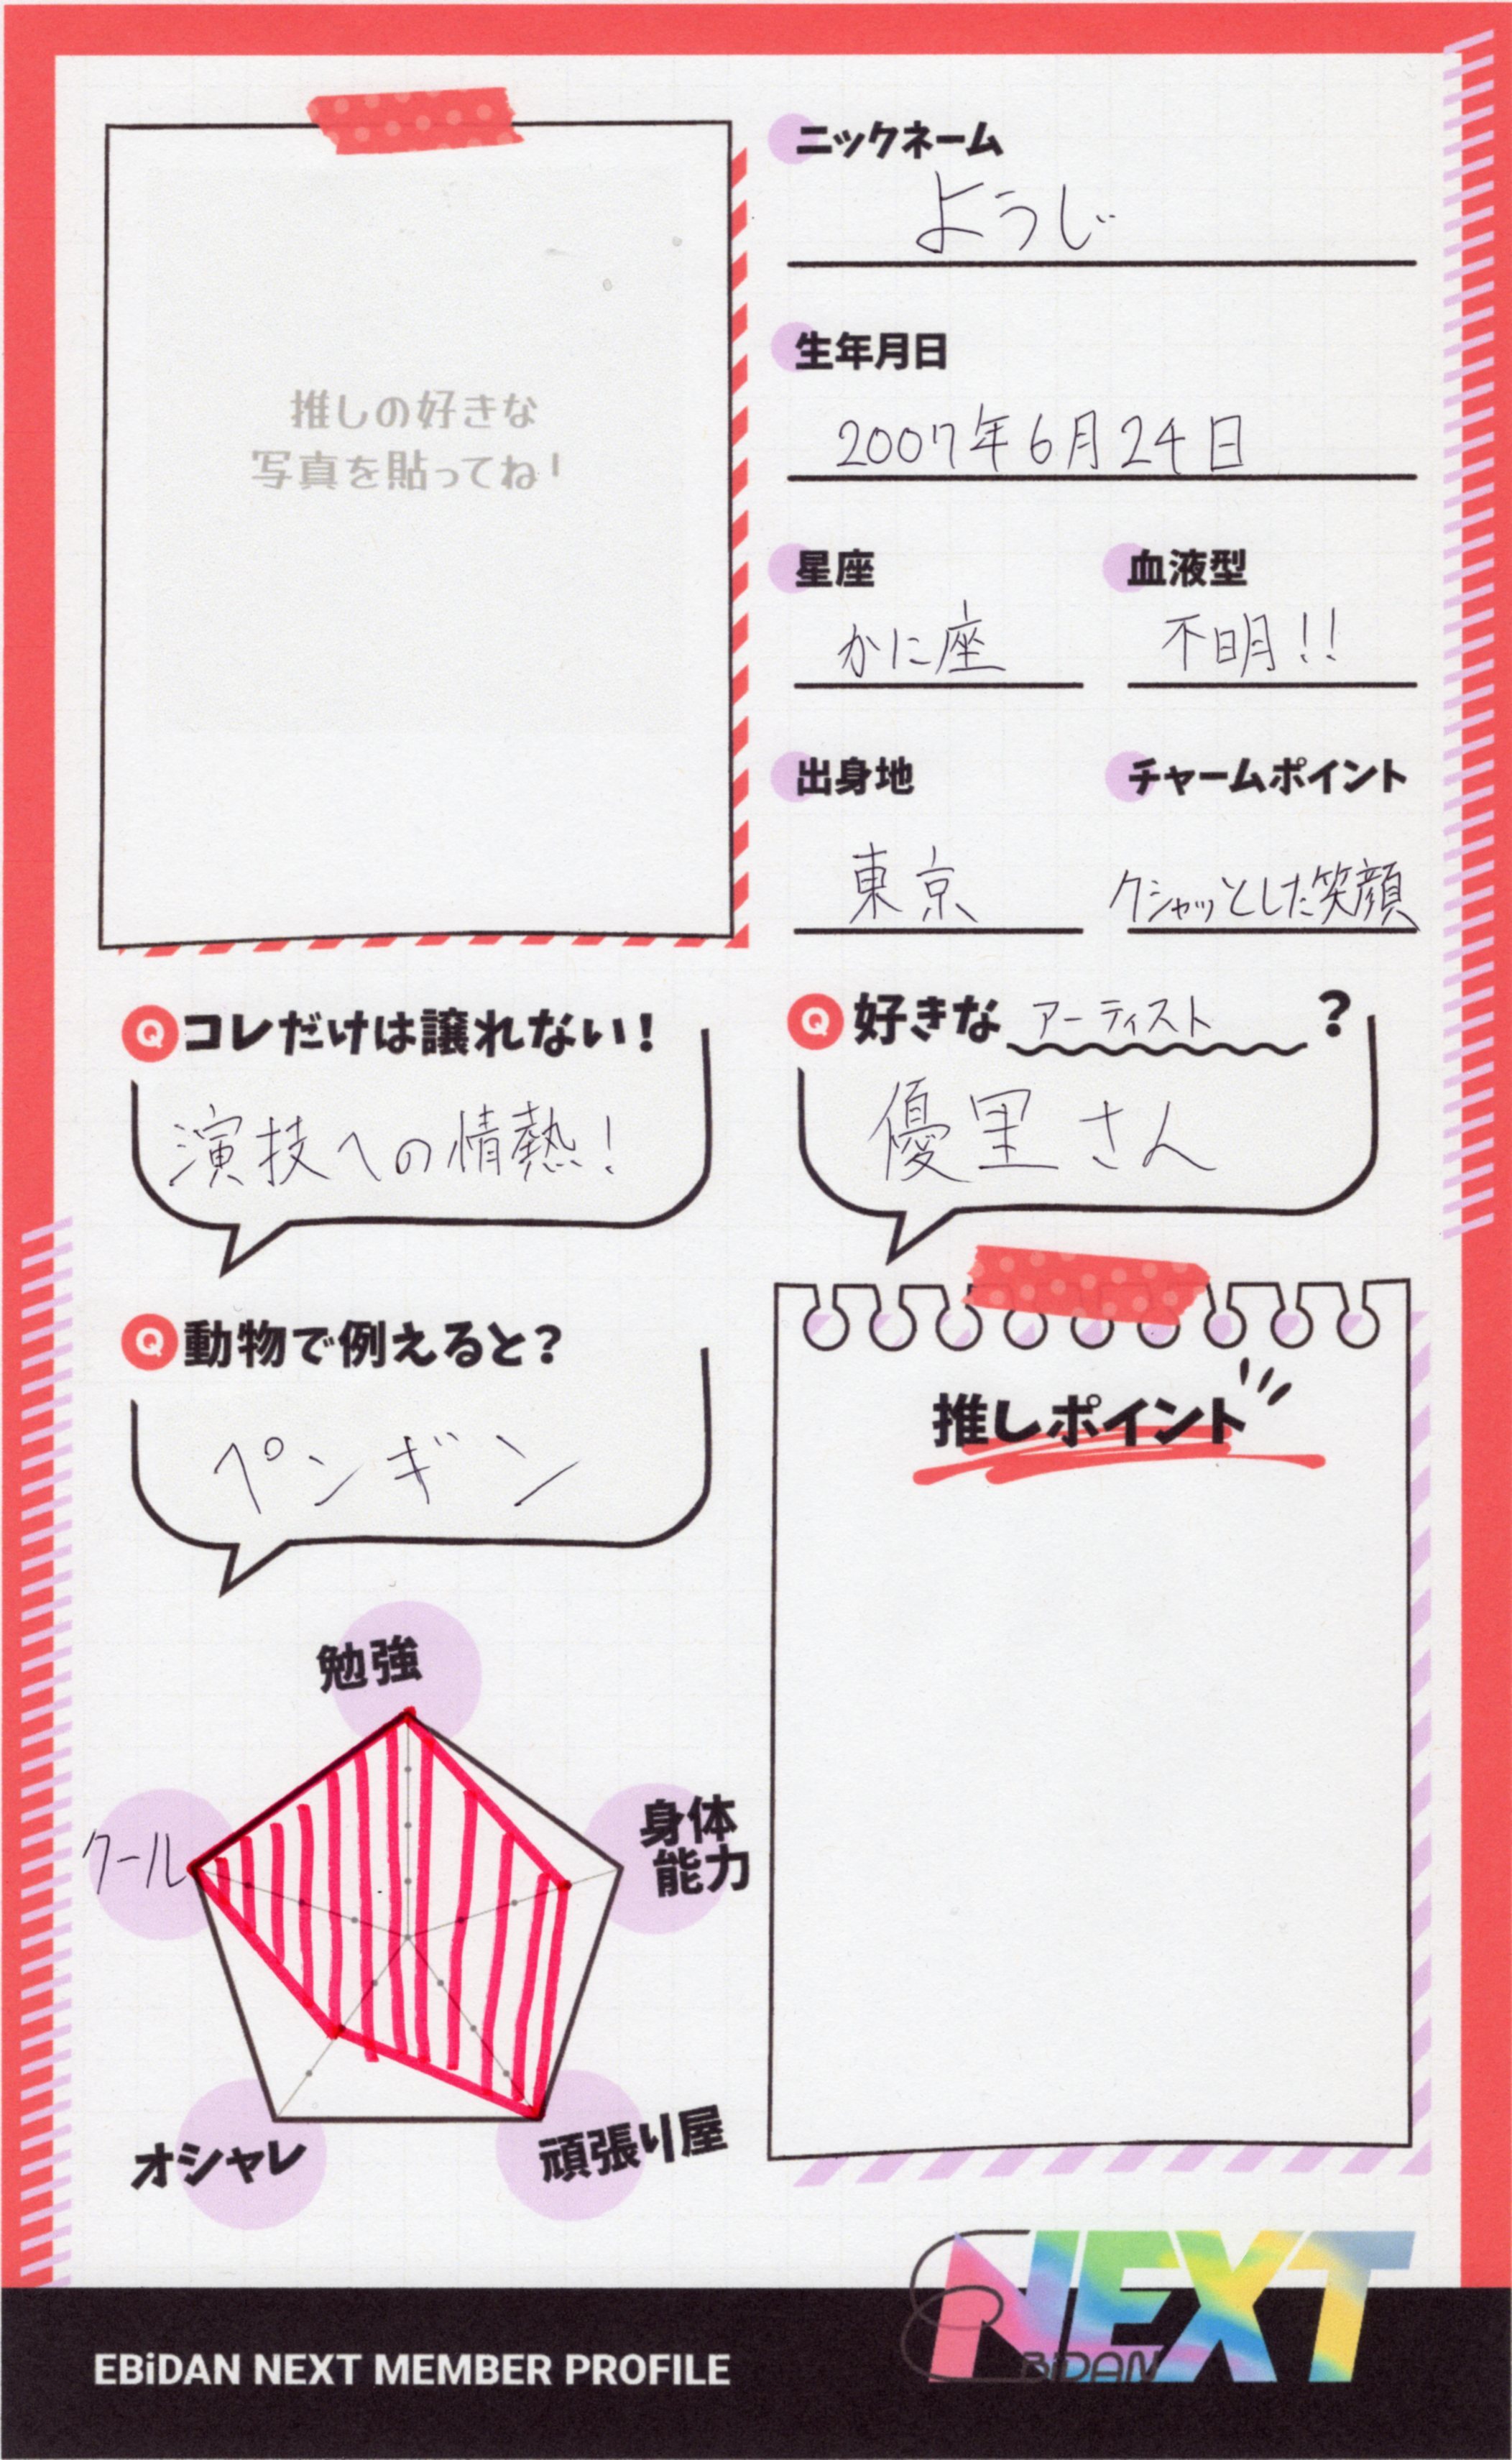 推しの好きな
写真を貼ってね!
ニックネーム
ようじ
生年月日
2007年6月24日
星座
かに座
血液型
不明!!
出身地
東京
チャームポイント
クシャッとした笑顔
Q コレだけは譲れない!
演技への情熱!
Q 好きな アーティスト ?
優里さん
Q 動物で例えると?
ペンギン
推しポイント
勉強
身体
能力
頑張り屋
オシャレ
クール
EBiDAN NEXT MEMBER PROFILE
EBiDAN NEXT